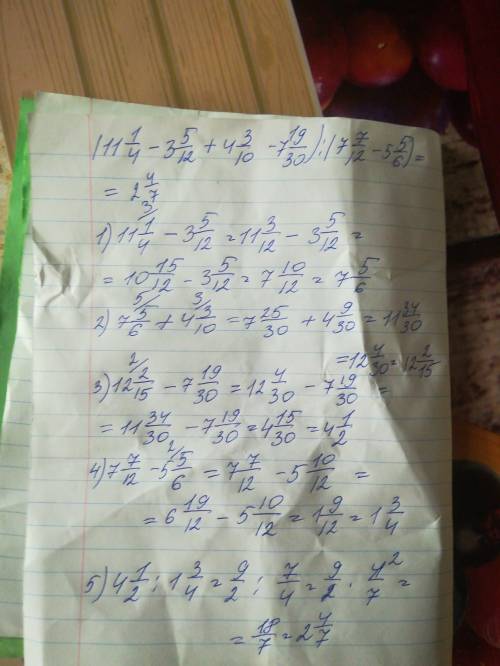 (11 1/4 - 3 5/12 + 4 3/10 - 7 19/30) : (7 7/12 - 5 5/6) =
= 2 4/7
1) 11 1/4 3/ - 3 5/12 = 11 3/12 - 3 5/12 =
= 10 15/12 - 3 5/12 = 7 10/12 = 7 5/6
2) 7 5/6 5/ + 4 3/10 3/ = 7 25/30 + 4 9/30 = 11 34/30
= 12 4/30 = 12 2/15
3) 12 2/15 2/ - 7 19/30 = 12 4/30 - 7 19/30 =
= 11 34/30 - 7 19/30 = 4 15/30 = 4 1/2
4) 7 7/12 - 5 5/6 2/ = 7 7/12 - 5 10/12 =
= 6 19/12 - 5 10/12 = 1 9/12 = 1 3/4
5) 4 1/2 : 1 3/4 = 9/2 : 7/4 = 9/2 · 4/7 2 =
= 18/7 = 2 4/7